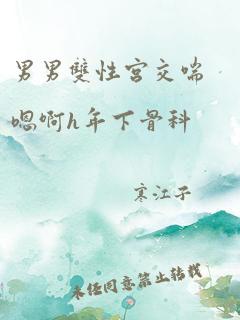 男男雙性宮交喘
嗯啊h年下骨科
寒江子
未经同意禁止转载